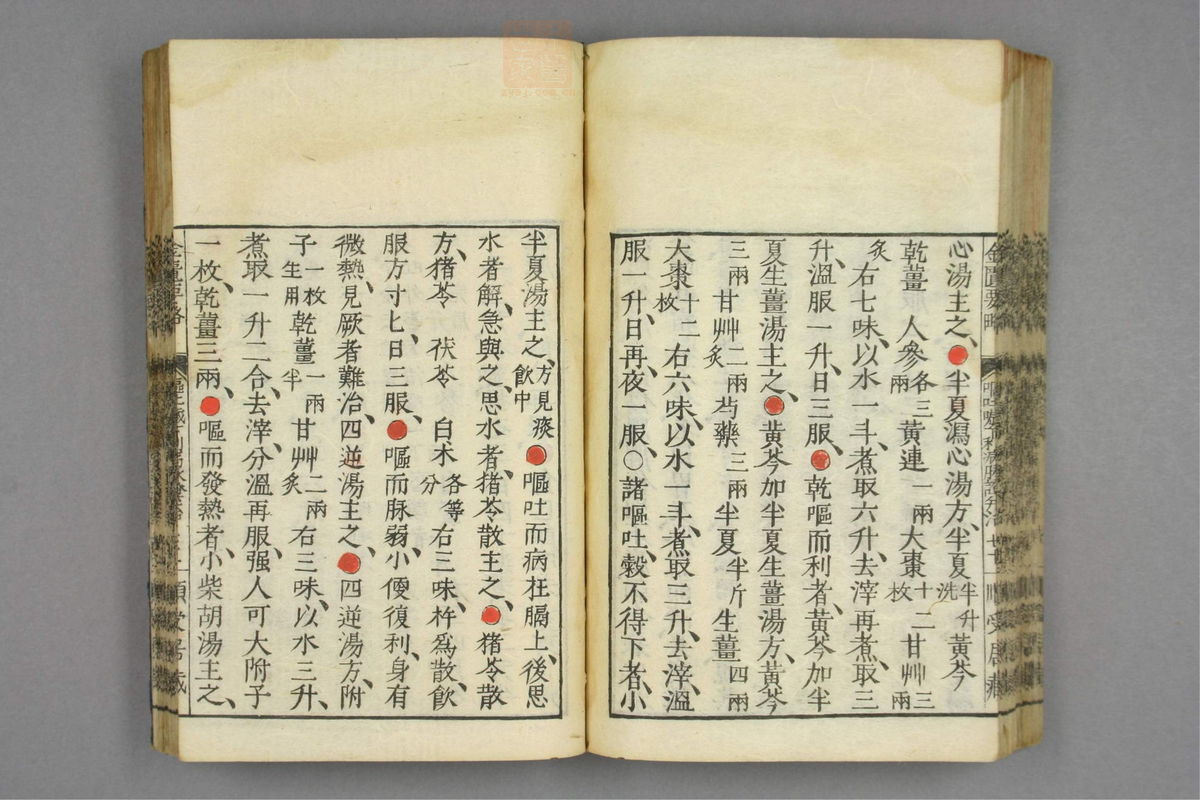 心湯主之、半夏瀉心湯方、半夏半升洗黃芩
乾薑　人參各三兩黃連一兩大棗十二枚甘艸三兩
炙右七味、以水一斗、煮取六升、去滓再煮、取三
升、溫服一升、日三服、乾嘔而利者、黃芩加半
夏生薑湯主之、黃芩加半夏生薑湯方、黃芩
三兩甘艸二兩炙芍藥三兩半夏半斤生薑四兩
大棗十二枚右六味、以水一斗、煮取三升、去滓、溫
服一升、日再、夜一服、○諸嘔吐、穀不得下者、小
半夏湯主之、方見痰飲中嘔吐而病在膈上、後思
水者解、急與之、思水者、猪苓散主之、猪苓散
方、猪苓　茯苓　白朮各等分右三味、杵爲散、飲
服方寸匕、日三服、嘔而脉弱、小便復利、身有
微熱、見厥者難治、四逆湯主之、四逆湯方、附
子一枚生用乾薑一兩半甘艸二兩炙右三味、以水三升、
煮取一升二合、去滓、分溫再服、强人可大附子
一枚、乾薑三兩、嘔而發熱者、小柴胡湯主之、